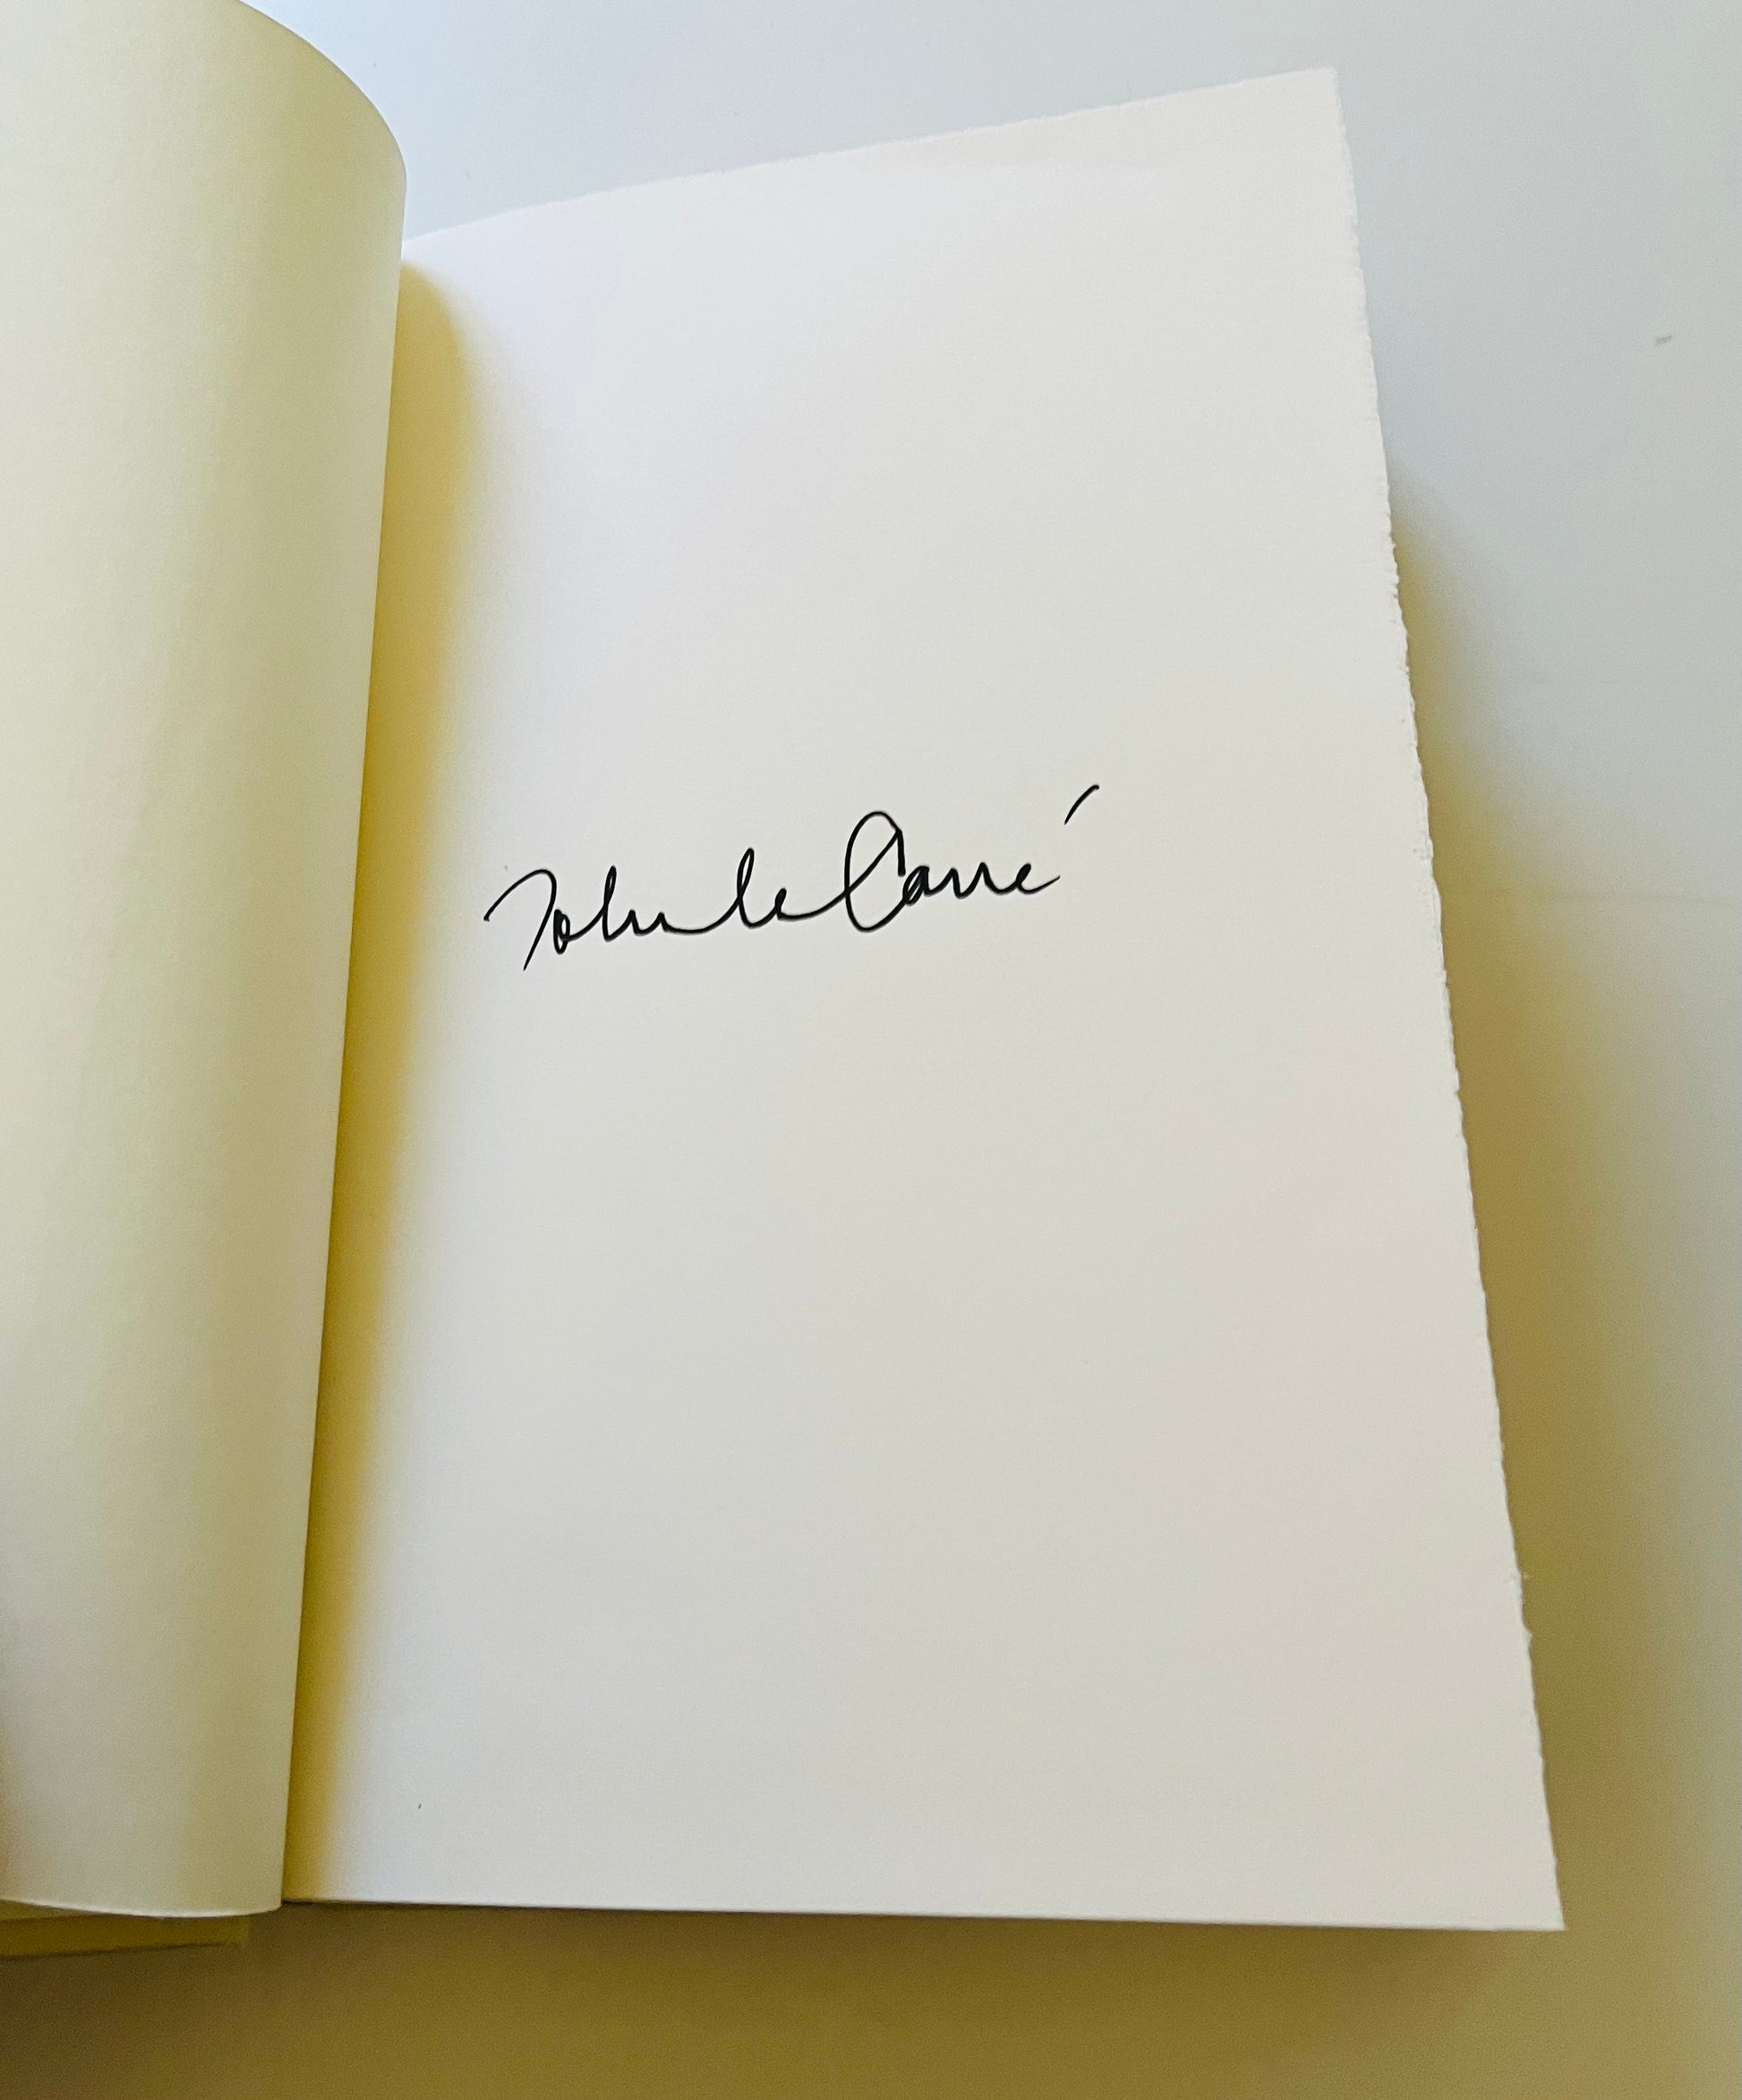 John le Carré